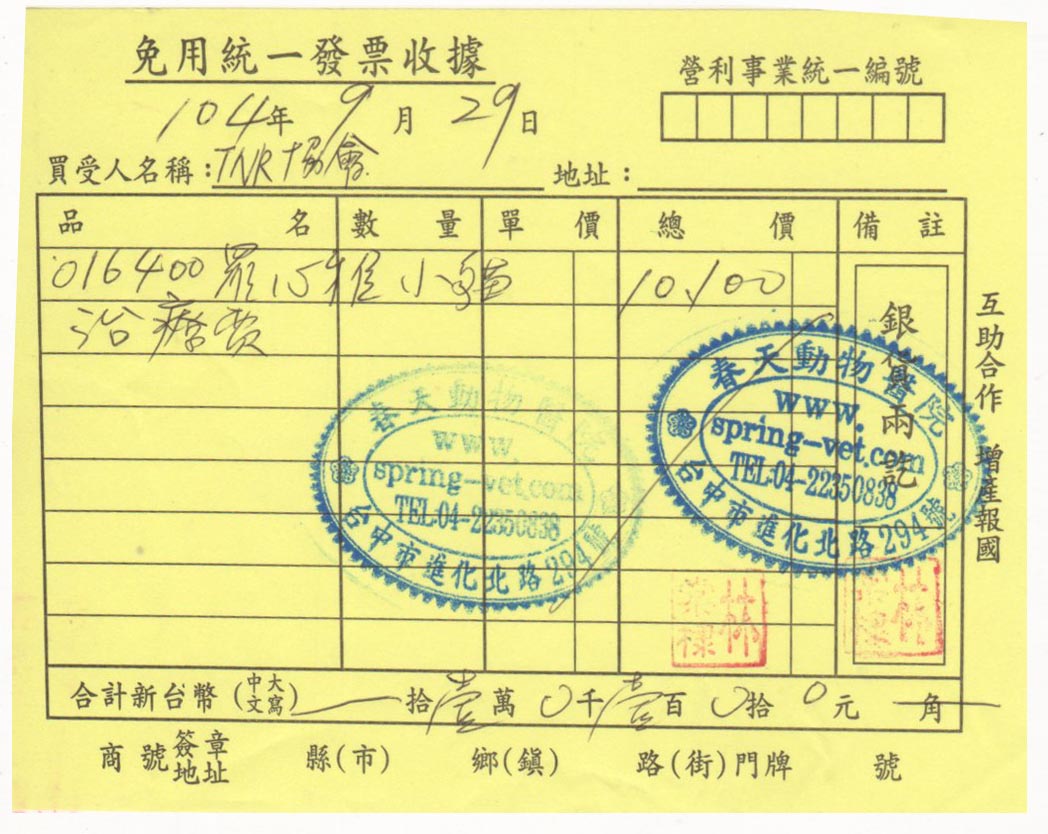 免用統一發票收據
營利事業統一編號
104年 9月 29日
買受人名稱：TNR協會 地址：
品名 數量 單價 總價 備註
016400 罗心雅 小貓 10,100
治療費
銀貨兩訖
互助合作 增產報國
春天動物醫院
www.
spring-vet.com
TEL:04-22350838
台中市進化北路294號
春天動物醫院
www.
spring-vet.com
TEL:04-22350838
台中市進化北路294號
林
林
合計新台幣(中文大寫) 拾壹萬0千壹百0拾0元 角
商號簽章地址 縣(市) 鄉(鎮) 路(街)門牌 號